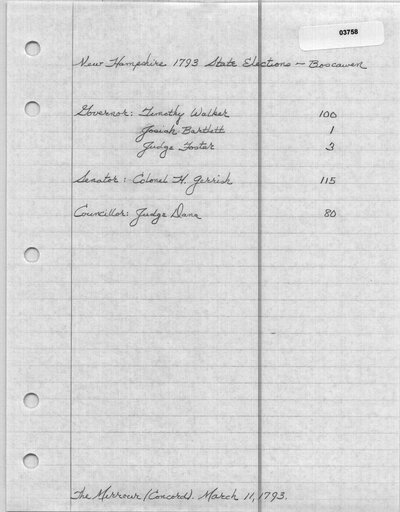 03758
New Hampshire 1793 State Elections – Boscawen
Governor: Timothy Walker 100
Josiah Bartlett 1
Judge Foster 3
Senator: Colonel H. Gerrish 115
Councillor: Judge Dana 80
The Mirrour (Concord). March 11, 1793.